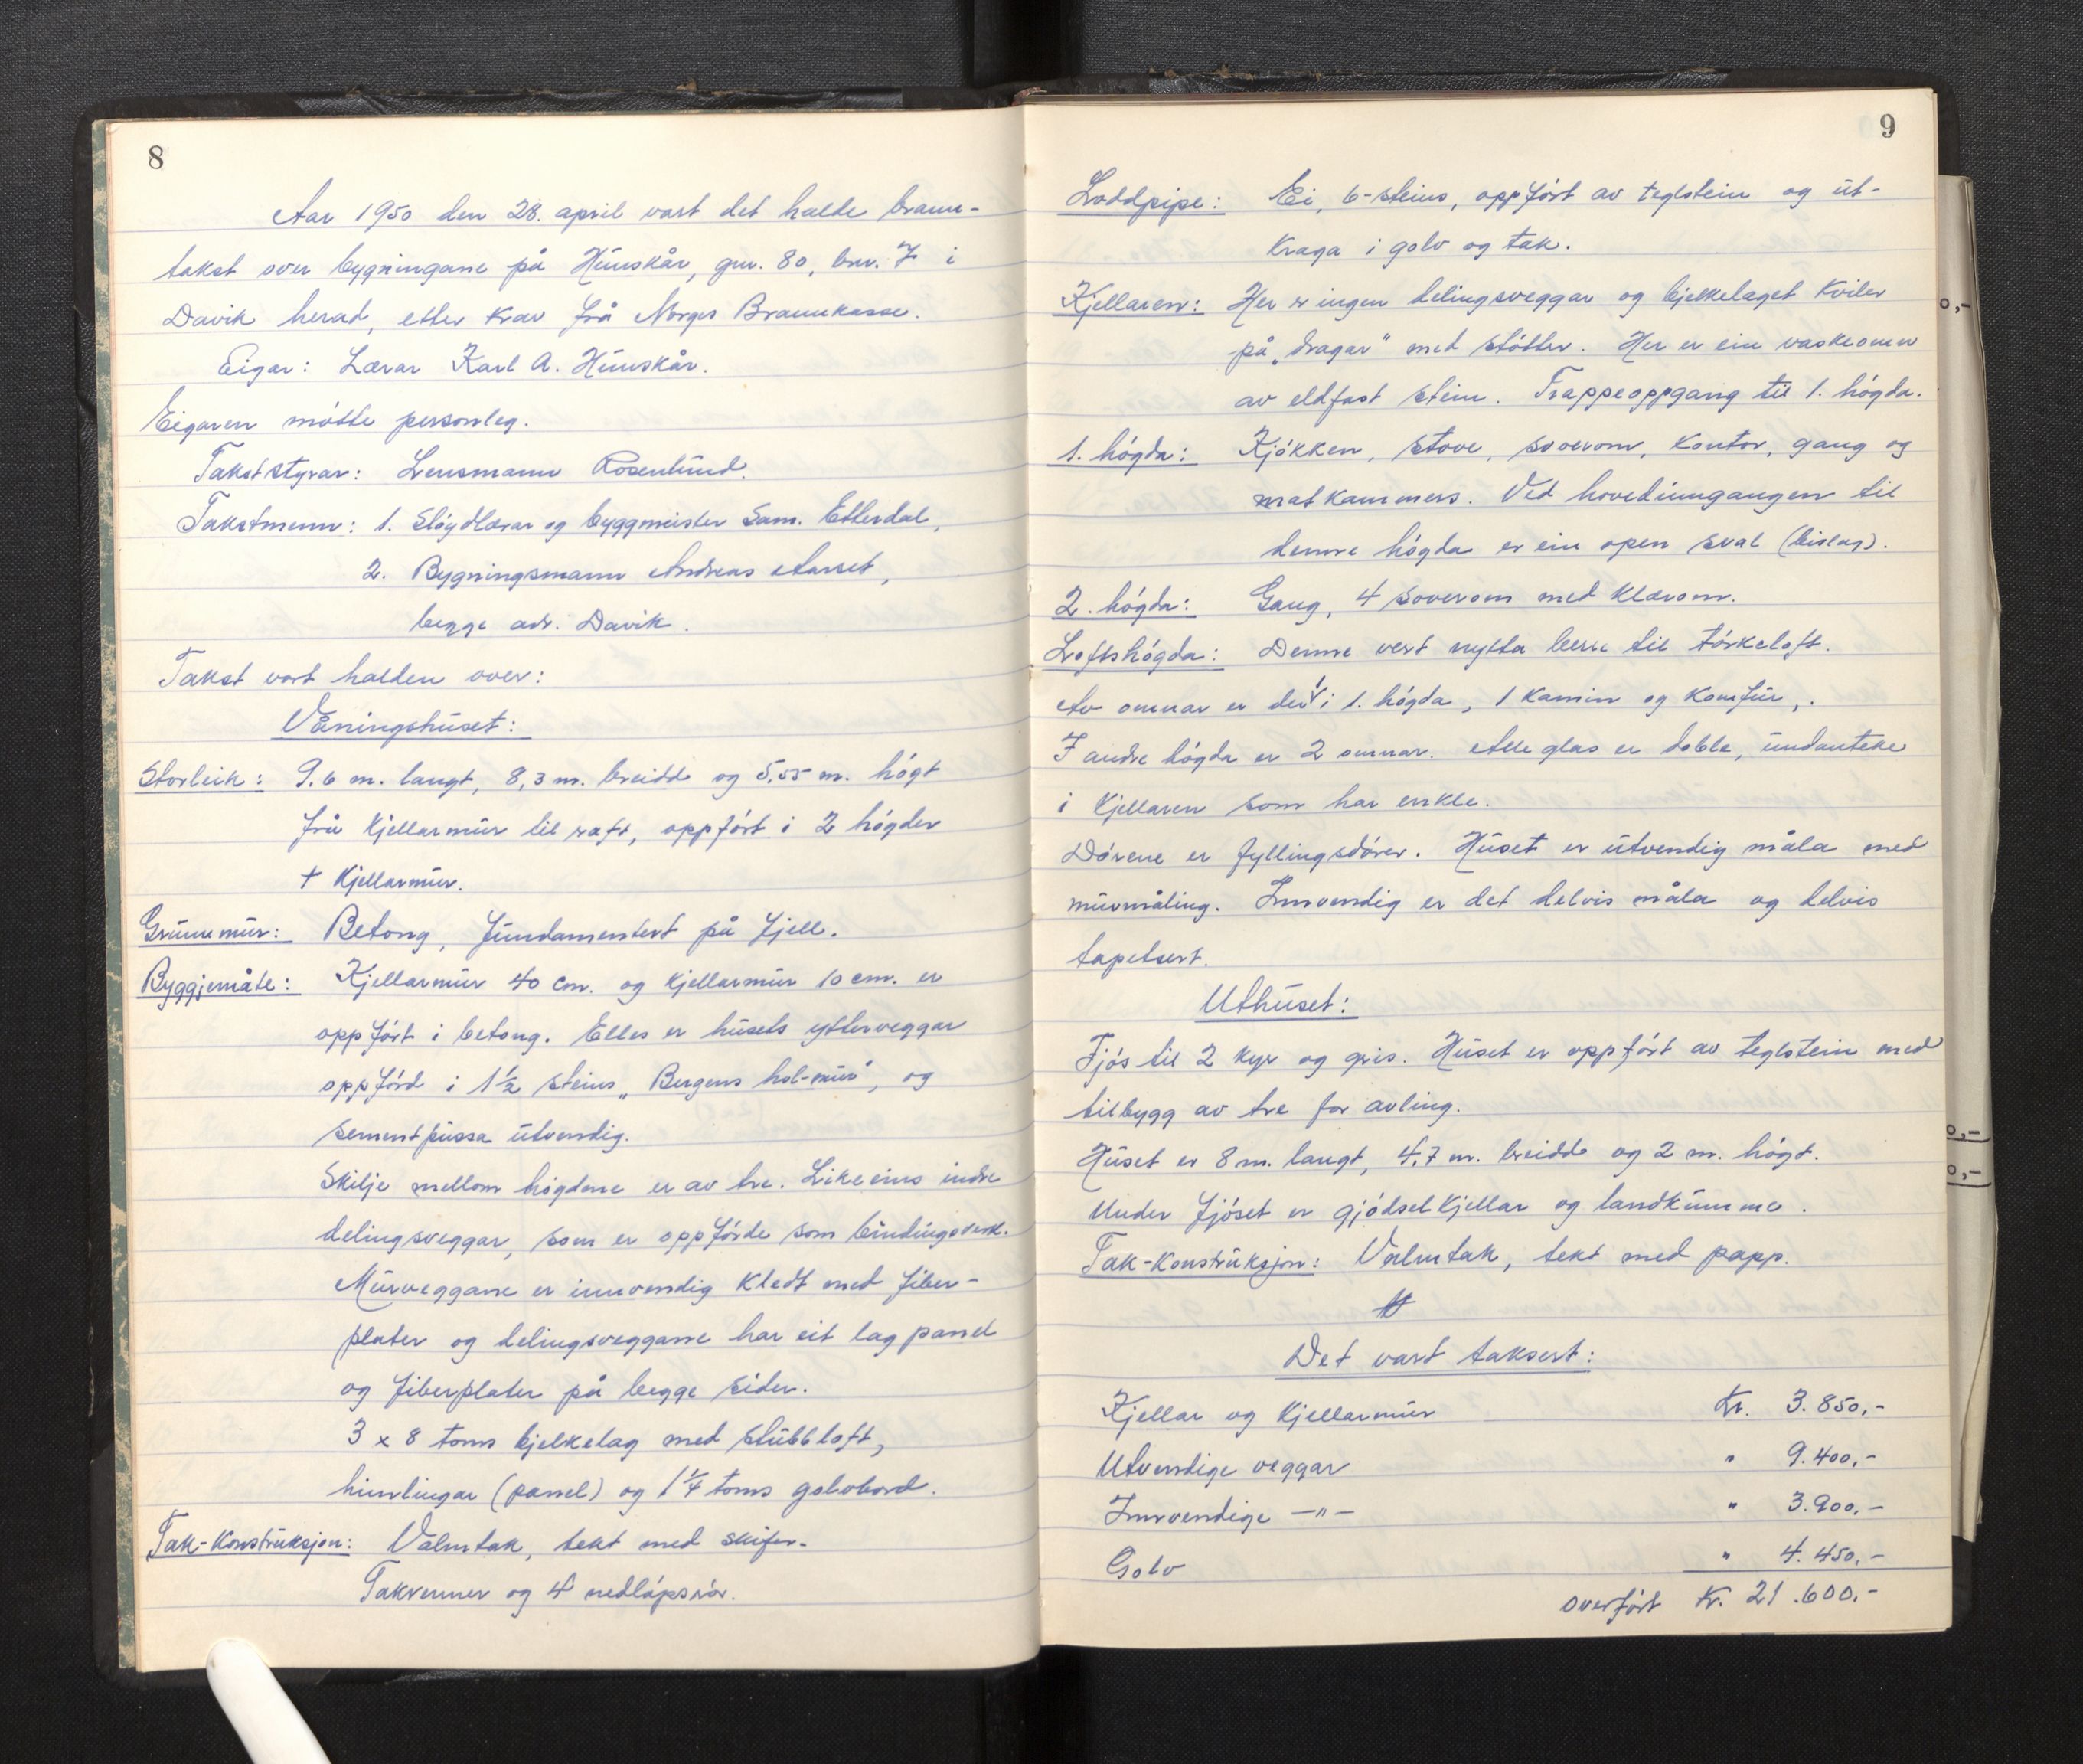 8
Aar 1950 den 28. april vart det halde brann-
takst over bygningane på Hunskår, gnr. 80, bnr. 7 i
Davik herad, etter krav frå Norges Brannkasse.
Eigar: Lærar Karl A. Hunskår.
Eigaren møtte personleg.
Takststyrar: Lensmann Rosenlund.
Takstmenn: 1. Sløydlærar og byggmeister Sam. Etterdal,
2. Bygningsmann Andreas Aarset,
begge adr. Davik.
Takst vart halden over:
Våningshuset:
Storleik: 9.6 m. langt, 8,3 m. breidd og 5,55 m. høgt
frå kjellarmur til raft, oppført i 2 høgder
+ kjellarmur.
Grunnmur: Betong, fundamentert på fjell.
Byggjemåte: Kjellarmur 40 cm. og kjellarmur 10 cm. er
oppført i betong. Elles er husets ytterveggar
oppførd i 1½ steins „Bergens hol-mur", og
sementpussa utvendig.
Skilje mellom høgdene er av tre. Likeeins indre
delingsveggar, som er oppførde som bindingsverk.
Murveggane er innvendig kledt med fiber-
plater og delingsveggane har eit lag panel
og fiberplater på begge sider.
3 x 8 toms bjelkelag med stubbloft,
himlingar (panel) og 1¼ toms golvbord.
Tak-konstruksjon: Valmtak, tekt med skifer.
Takrenner og 4 nedløpsrør.
9
Loddpipe: Ei, 6-steins, oppført av teglstein og ut-
kraga i golv og tak.
Kjellaren: Her er ingen delingsveggar og bjelkelaget kviler
på „dragar" med støtter. Her er ein vaskeomn
av eldfast stein. Trappeoppgang til 1. høgda.
1. høgda: Kjøkken, stove, soverom, kontor, gang og
matkammers. Ved hovedinngangen til
denne høgda er ein open sval (bislag).
2. høgda: Gang, 4 soverom med klærom.
Loftshøgda: Denne vert nytta berre til tørkeloft.
Av omnar er der i 1. høgda, 1 kamin og komfur,.
I andre høgda er 2 omnar. Alle glas er doble, undanteke
i kjellaren som har enkle.
Dørene er fyllingsdører. Huset er utvendig måla med
murmåling. Innvendig er det delvis måla og delvis
tapetsert.
Uthuset:
Fjøs til 2 kyr og gris. Huset er oppført av teglstein med
tilbygg av tre for avling.
Huset er 8 m. langt, 4,7 m. breidd og 2 m. høgt.
Under fjøset er gjødselkjellar og landkumme.
Tak-konstruksjon: Valmtak, tekt med papp.
Det vart taksert:
Kjellar og kjellarmur Kr. 3.850,-
Utvendige veggar " 9.400,-
Innvendige —"— " 3.900,-
Golv " 4.450,-
overført Kr. 21.600,-
0,-
0,-
0,-